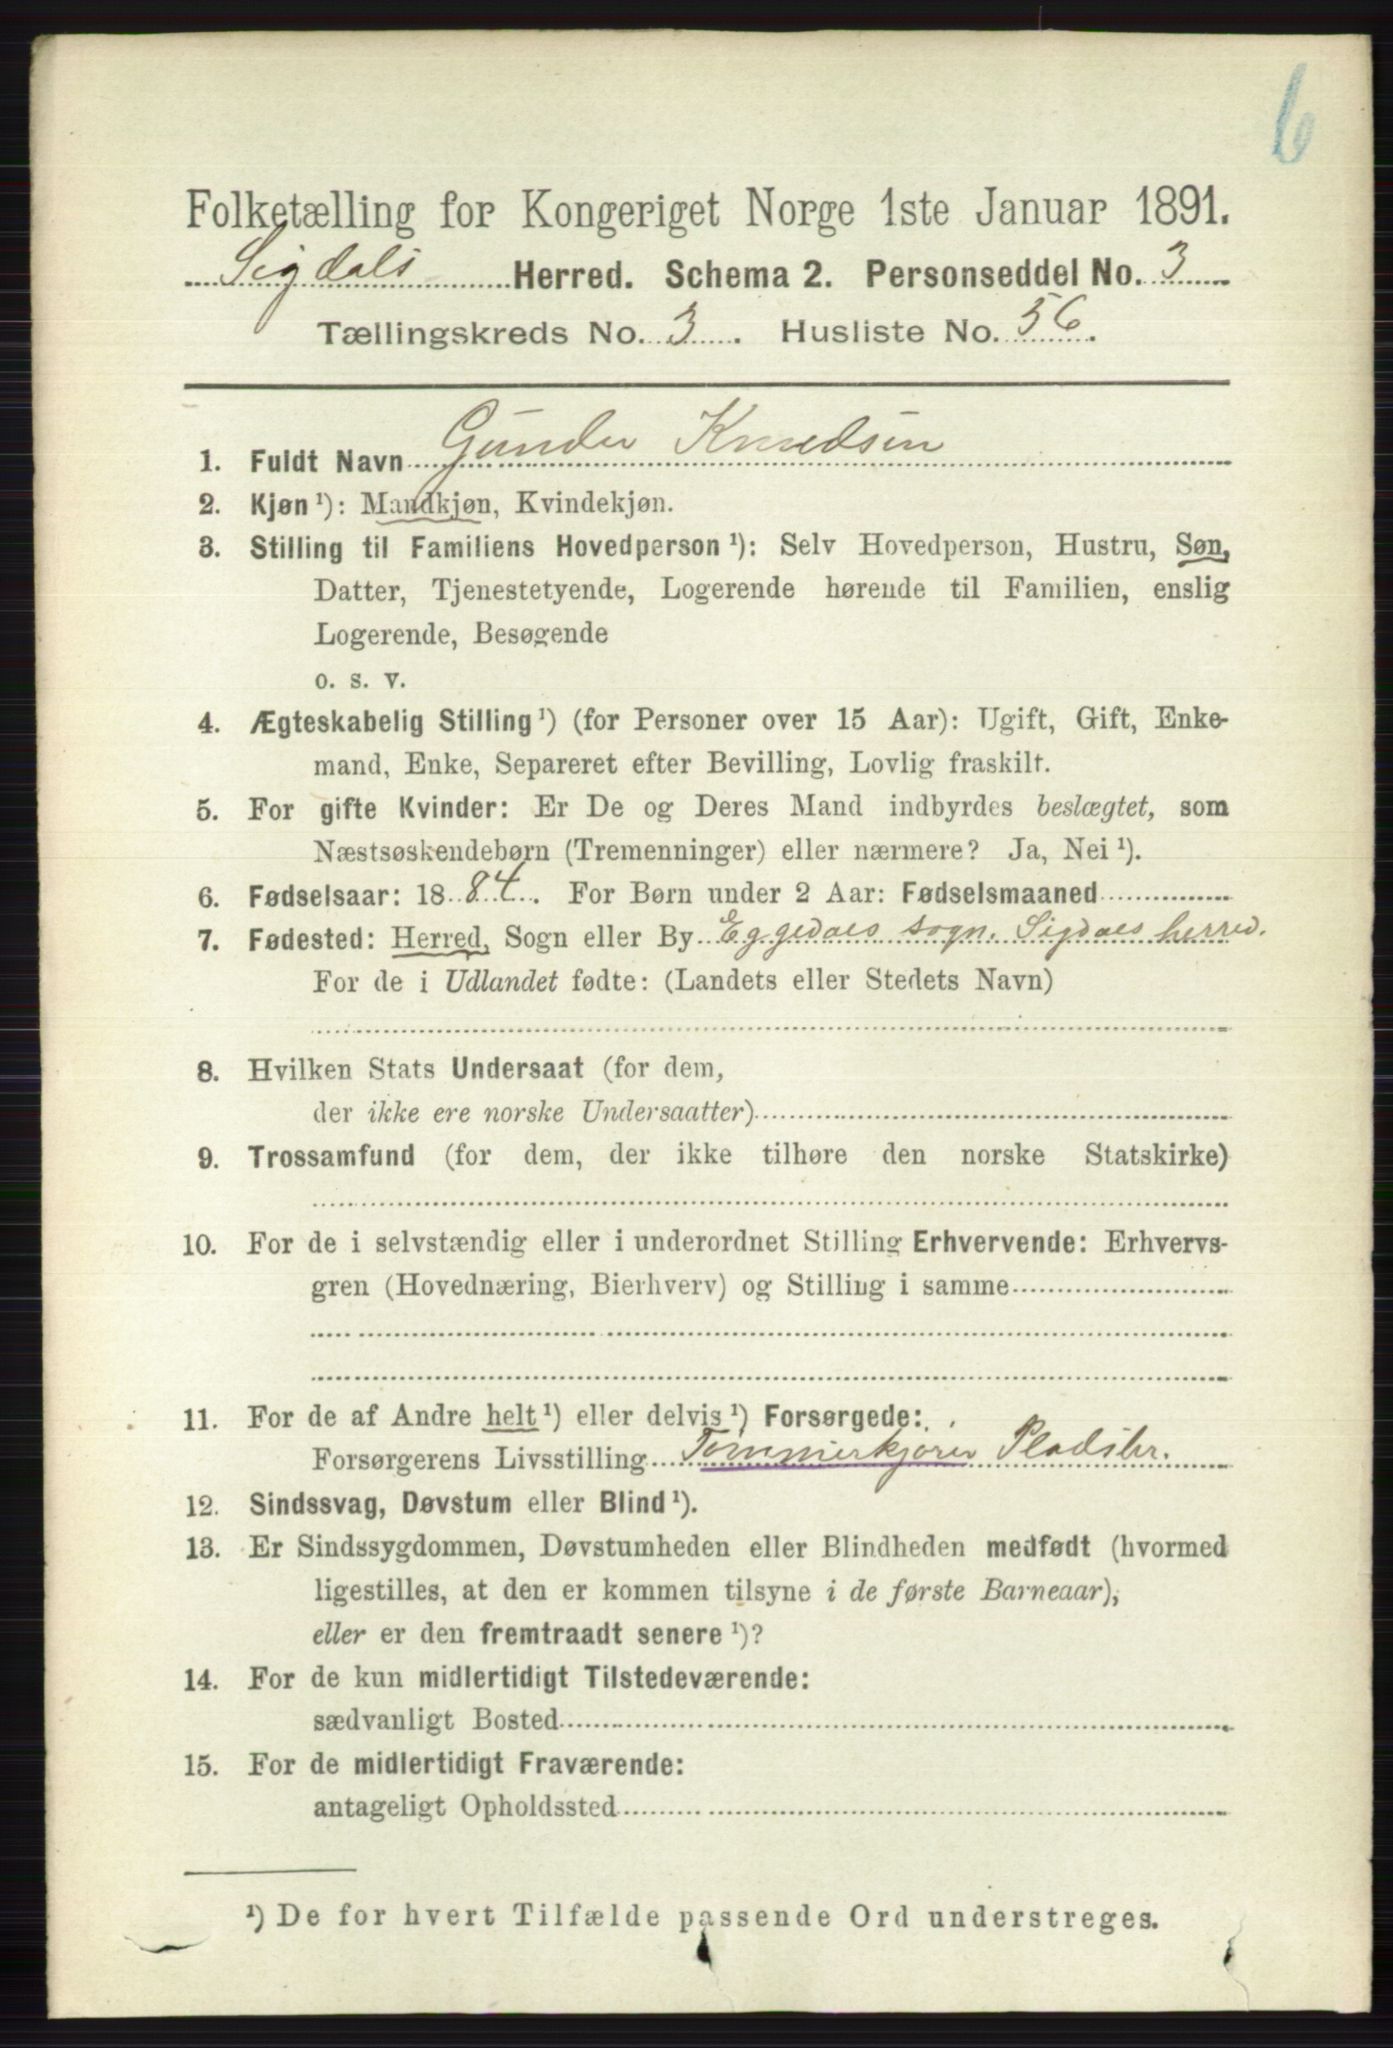 6
Folketælling for Kongeriget Norge 1ste Januar 1891.
Sigdals Herred. Schema 2. Personseddel No. 3
Tællingskreds No. 3. Husliste No. 56.
1. Fuldt Navn Gunder Knudsen
2. Kjøn ¹): Mandkjøn, Kvindekjøn.
3. Stilling til Familiens Hovedperson ¹): Selv Hovedperson, Hustru, Søn,
Datter, Tjenestetyende, Logerende hørende til Familien, enslig
Logerende, Besøgende
o. s. v.
4. Ægteskabelig Stilling ¹) (for Personer over 15 Aar): Ugift, Gift, Enke-
mand, Enke, Separeret efter Bevilling, Lovlig fraskilt.
5. For gifte Kvinder: Er De og Deres Mand indbyrdes beslægtet, som
Næstsøskendebørn (Tremenninger) eller nærmere? Ja, Nei ¹).
6. Fødselsaar: 1884. For Børn under 2 Aar: Fødselsmaaned
7. Fødested: Herred, Sogn eller By Eggedals sogn. Sigdals herred.
For de i Udlandet fødte: (Landets eller Stedets Navn)
8. Hvilken Stats Undersaat (for dem,
der ikke ere norske Undersaatter)
9. Trossamfund (for dem, der ikke tilhøre den norske Statskirke)
10. For de i selvstændig eller i underordnet Stilling Erhvervende: Erhvervs-
gren (Hovednæring, Bierhverv) og Stilling i samme
11. For de af Andre helt ¹) eller delvis ¹) Forsørgede:
Forsørgerens Livsstilling Tømmerkjører Pladsbr.
12. Sindssvag, Døvstum eller Blind ¹).
13. Er Sindssygdommen, Døvstumheden eller Blindheden medfødt (hvormed
ligestilles, at den er kommen tilsyne i de første Barneaar),
eller er den fremtraadt senere ¹)?
14. For de kun midlertidigt Tilstedeværende:
sædvanligt Bosted
15. For de midlertidigt Fraværende:
antageligt Opholdssted
¹) De for hvert Tilfælde passende Ord understreges.